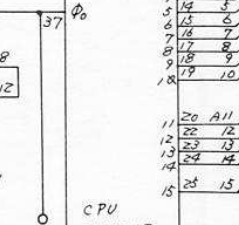 37 Φ₀
5 14 5
6 15 6
7 16 7
8 17 8
9 18 9
10 19 10
8
12
11 20 A11
12 22 12
13 23 13
14 24 14
15 25 15
CPU